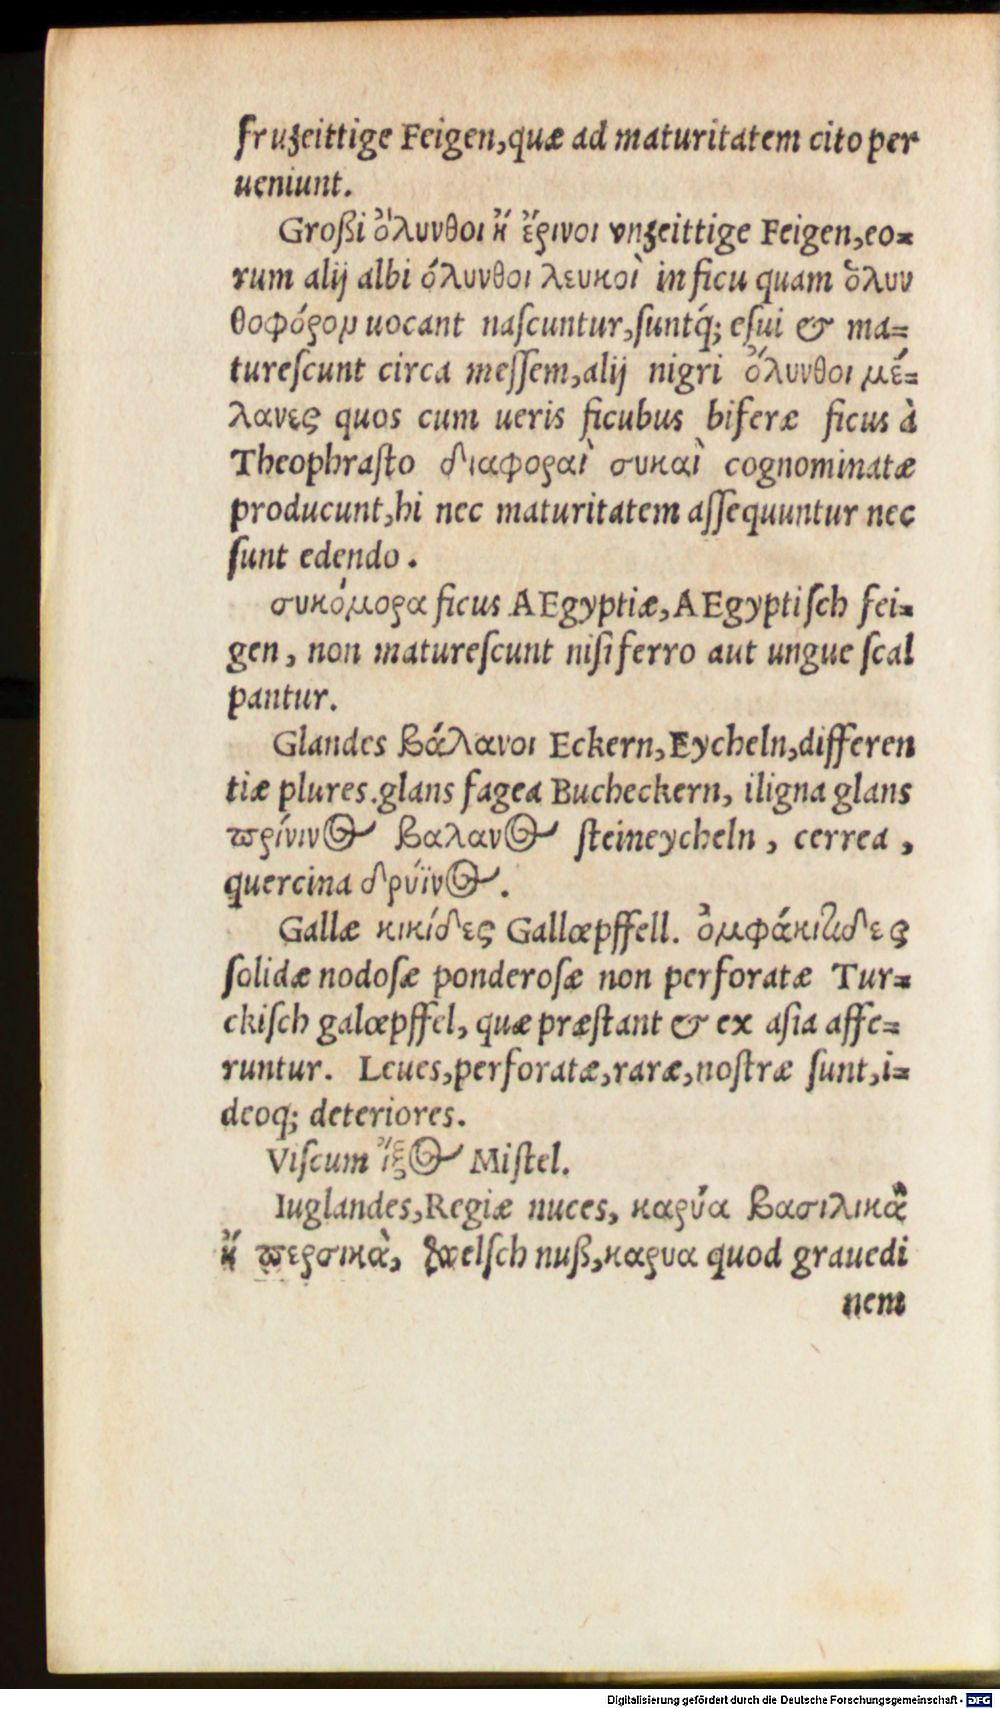 fruʒeittige Feigen,quæ ad maturitatem cito per
ueniunt.
Großi ὄλυνθοι ἢ ἔρινοι vnʒeittige Feigen,eo=
rum alij albi όλυνθοι λευκοὶ in ficu quam ὃλυν
θοφόρομ uocant naſcuntur,ſuntq́; eſui & ma=
tureſcunt circa meſſem,alij nigri ὄλυνθοι μέ=
λανες quos cum ueris ficubus biferæ ficus à
Theophraſto διαφοραὶ συκαὶ cognominatæ
producunt,hi nec maturitatem aſſequuntur nec
ſunt edendo.
συκόμορα ficus AEgyptiæ,AEgyptiſch fei=
gen, non matureſcunt niſi ferro aut ungue ſcal
pantur.
Glandes βάλανοι Eckern,Eycheln,differen
tiæ plures.glans fagea Bucheckern, iligna glans
πρίνινος βαλανος ſteineycheln, cerrea,
quercina δρύϊνος.
Gallæ κικίδες Gallœpffell. ὀμφάκιτιδες
ſolidæ nodoſæ ponderoſæ non perforatæ Tur=
ckiſch galœpffel, quæ præſtant & ex aſia affe=
runtur. Leues,perforatæ,raræ,noſtræ ſunt,i=
deoq; deteriores.
Viſcum ἴξος Miſtel.
Iuglandes,Regiæ nuces, καρύα βασιλικὰ
ἢ περσικὰ, Welſch nuß,καρυα quod grauedi
nem
Digitalisierung gefördert durch die Deutsche Forschungsgemeinschaft - DFG